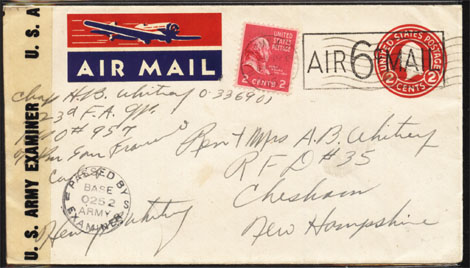 U. S. ARMY EXAMINER U. S. A
AIR MAIL
UNITED STATES POSTAGE
2 CENTS 2
AIR 6¢ MAIL
UNITED STATES POSTAGE
2 CENTS 2
H.B. Whitney O-336901
23d F.A.
#957
San Francisco
PASSED BY
BASE
0252
ARMY
EXAMINER
Henry Whitney
Rev + Mrs A.B. Whitney
RFD #35
Chesham
New Hampshire